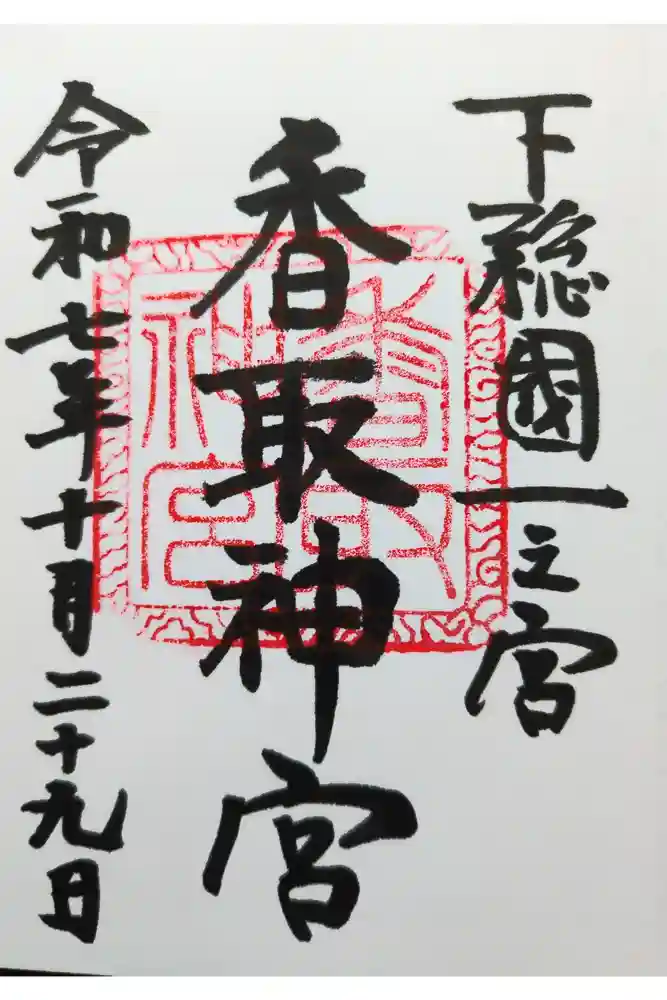 下総國一之宮
香取神宮
令和七年十月二十九日
香取神宮